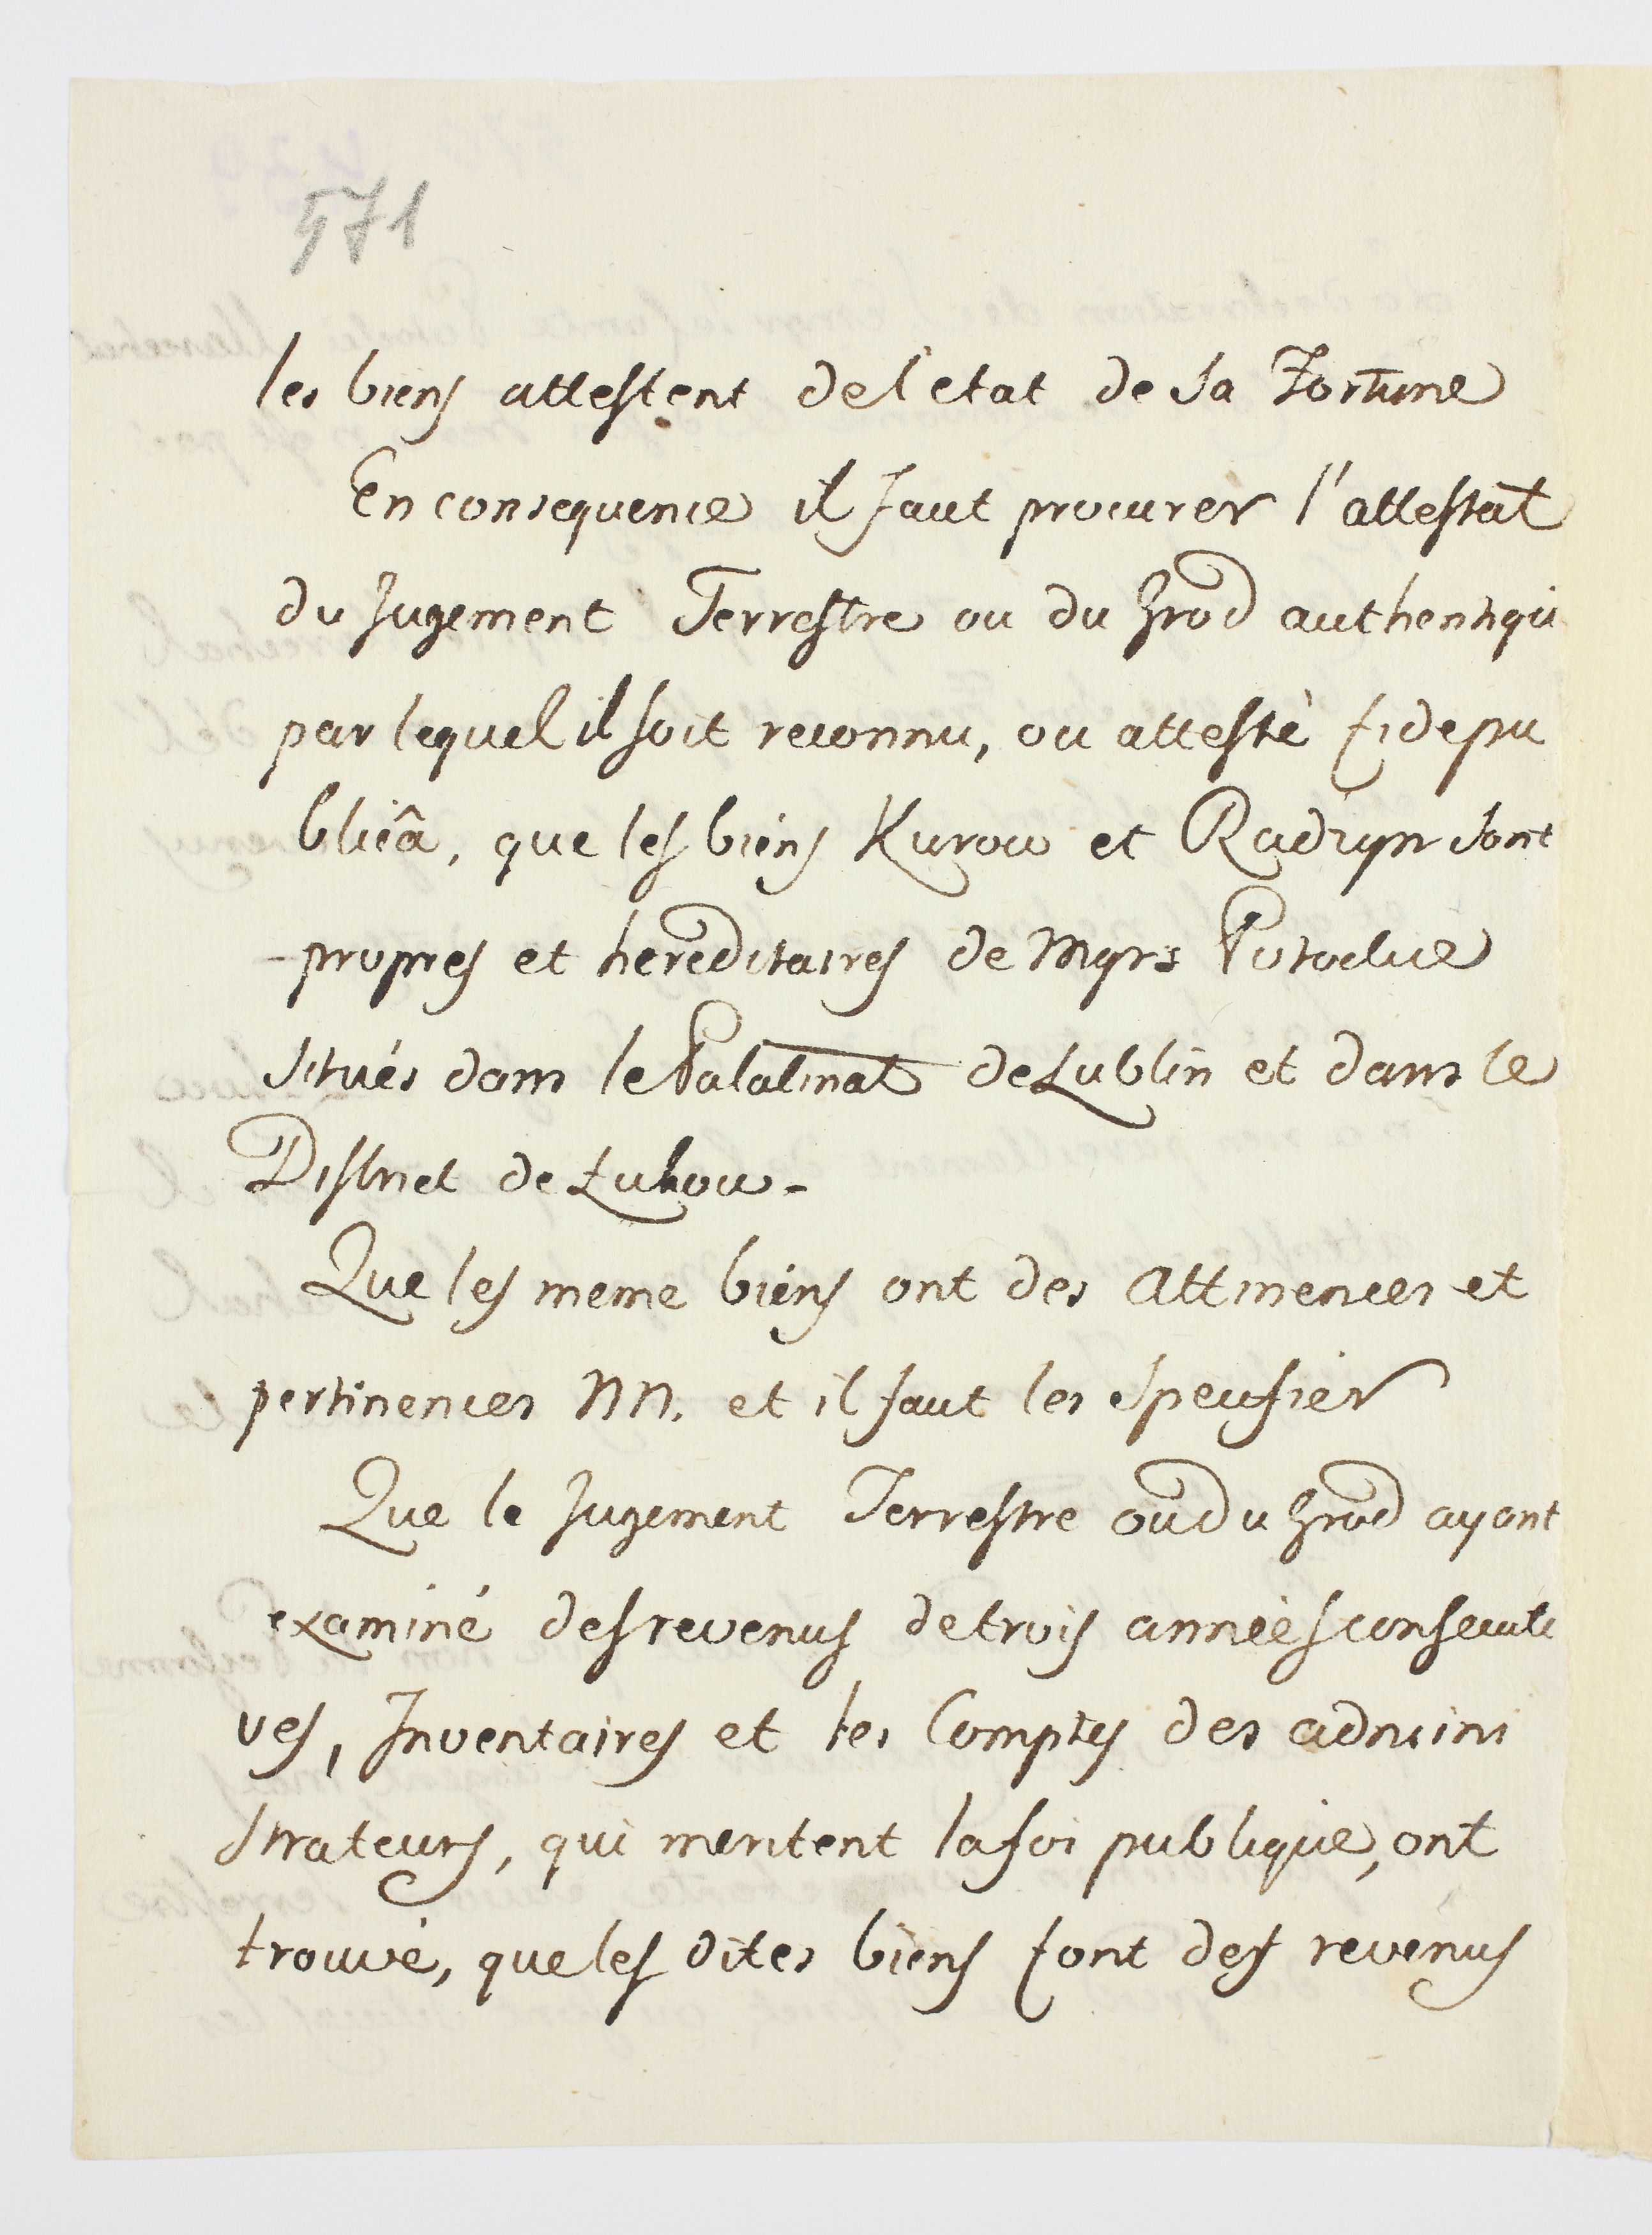 571
les biens attestent de l'etat de sa Fortune
En consequence il faut procurer l'attestat
du Jugement Terrestre ou du Grod authentiqu
par lequel il soit reconnu, ou attesté fide pu
blicâ, que les biens Kurow et Radzyn sont
-propres et hereditaires de Mgrs Potockie
situés dans le Palatinat de Lublin et dans le
District de Łukow-
Que les meme biens ont des Attinences et
pertinences NN. et il faut les specifier
Que le Jugement Terrestre ou du Grod ayant
examiné des revenus de trois annèes consecuti
ves, Inventaires et les Comptes des admini
strateurs, qui meritent la foi publique, ont
trouvé, que les dites biens font des revenus